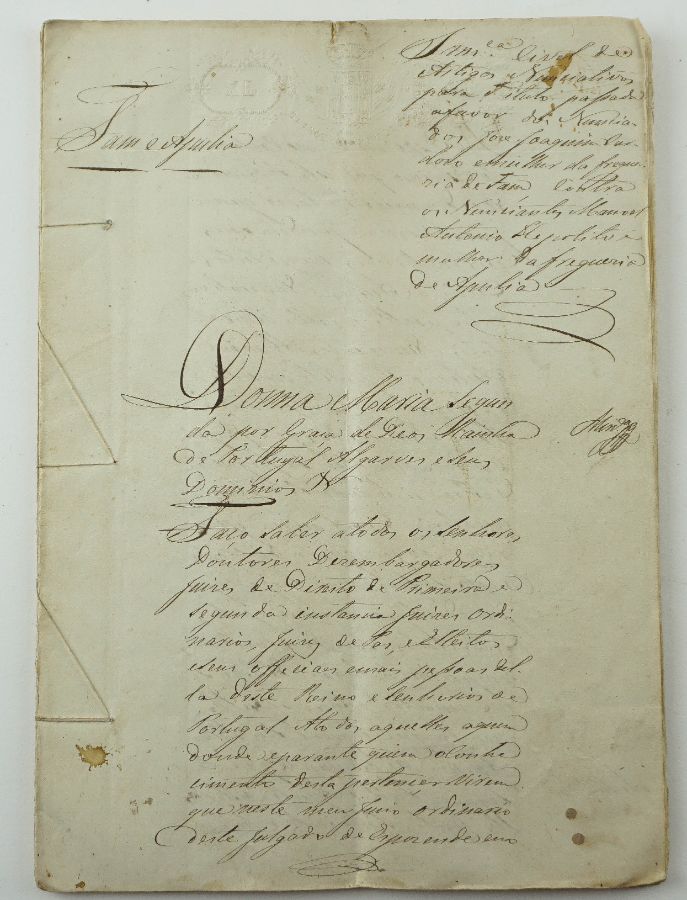 Fam e Apulia
Sam.ca Civel de
Artigos Nunciativos
para Titulo passada
a favor dos Nuncia
dos José Joaquim
e mulher da fregue
zia de Fam Contra
os Nunciantes Manoel
Antonio Hepolito e
mulher da freguezia
de Apulia
Donna Maria Segun
da por Graça de Deos Rainha
de Portugal Algarves e seus
Dominios &
Faço saber atodos os Senhores
Doutores Dezembargadores
Juizes de Direito de Primeira e
segunda instancia Juizes Ordi
narios, Juizes de Paz, e Elleitos
e seus officiaes e mais pessoas del
la deste Reino e senhorios de
Portugal Atodos aquelles aquem
donde eparante quem o Conhe
cimento desta pertencer Virem
que neste meu Juizo Ordinario
deste Julgado de Espozende em